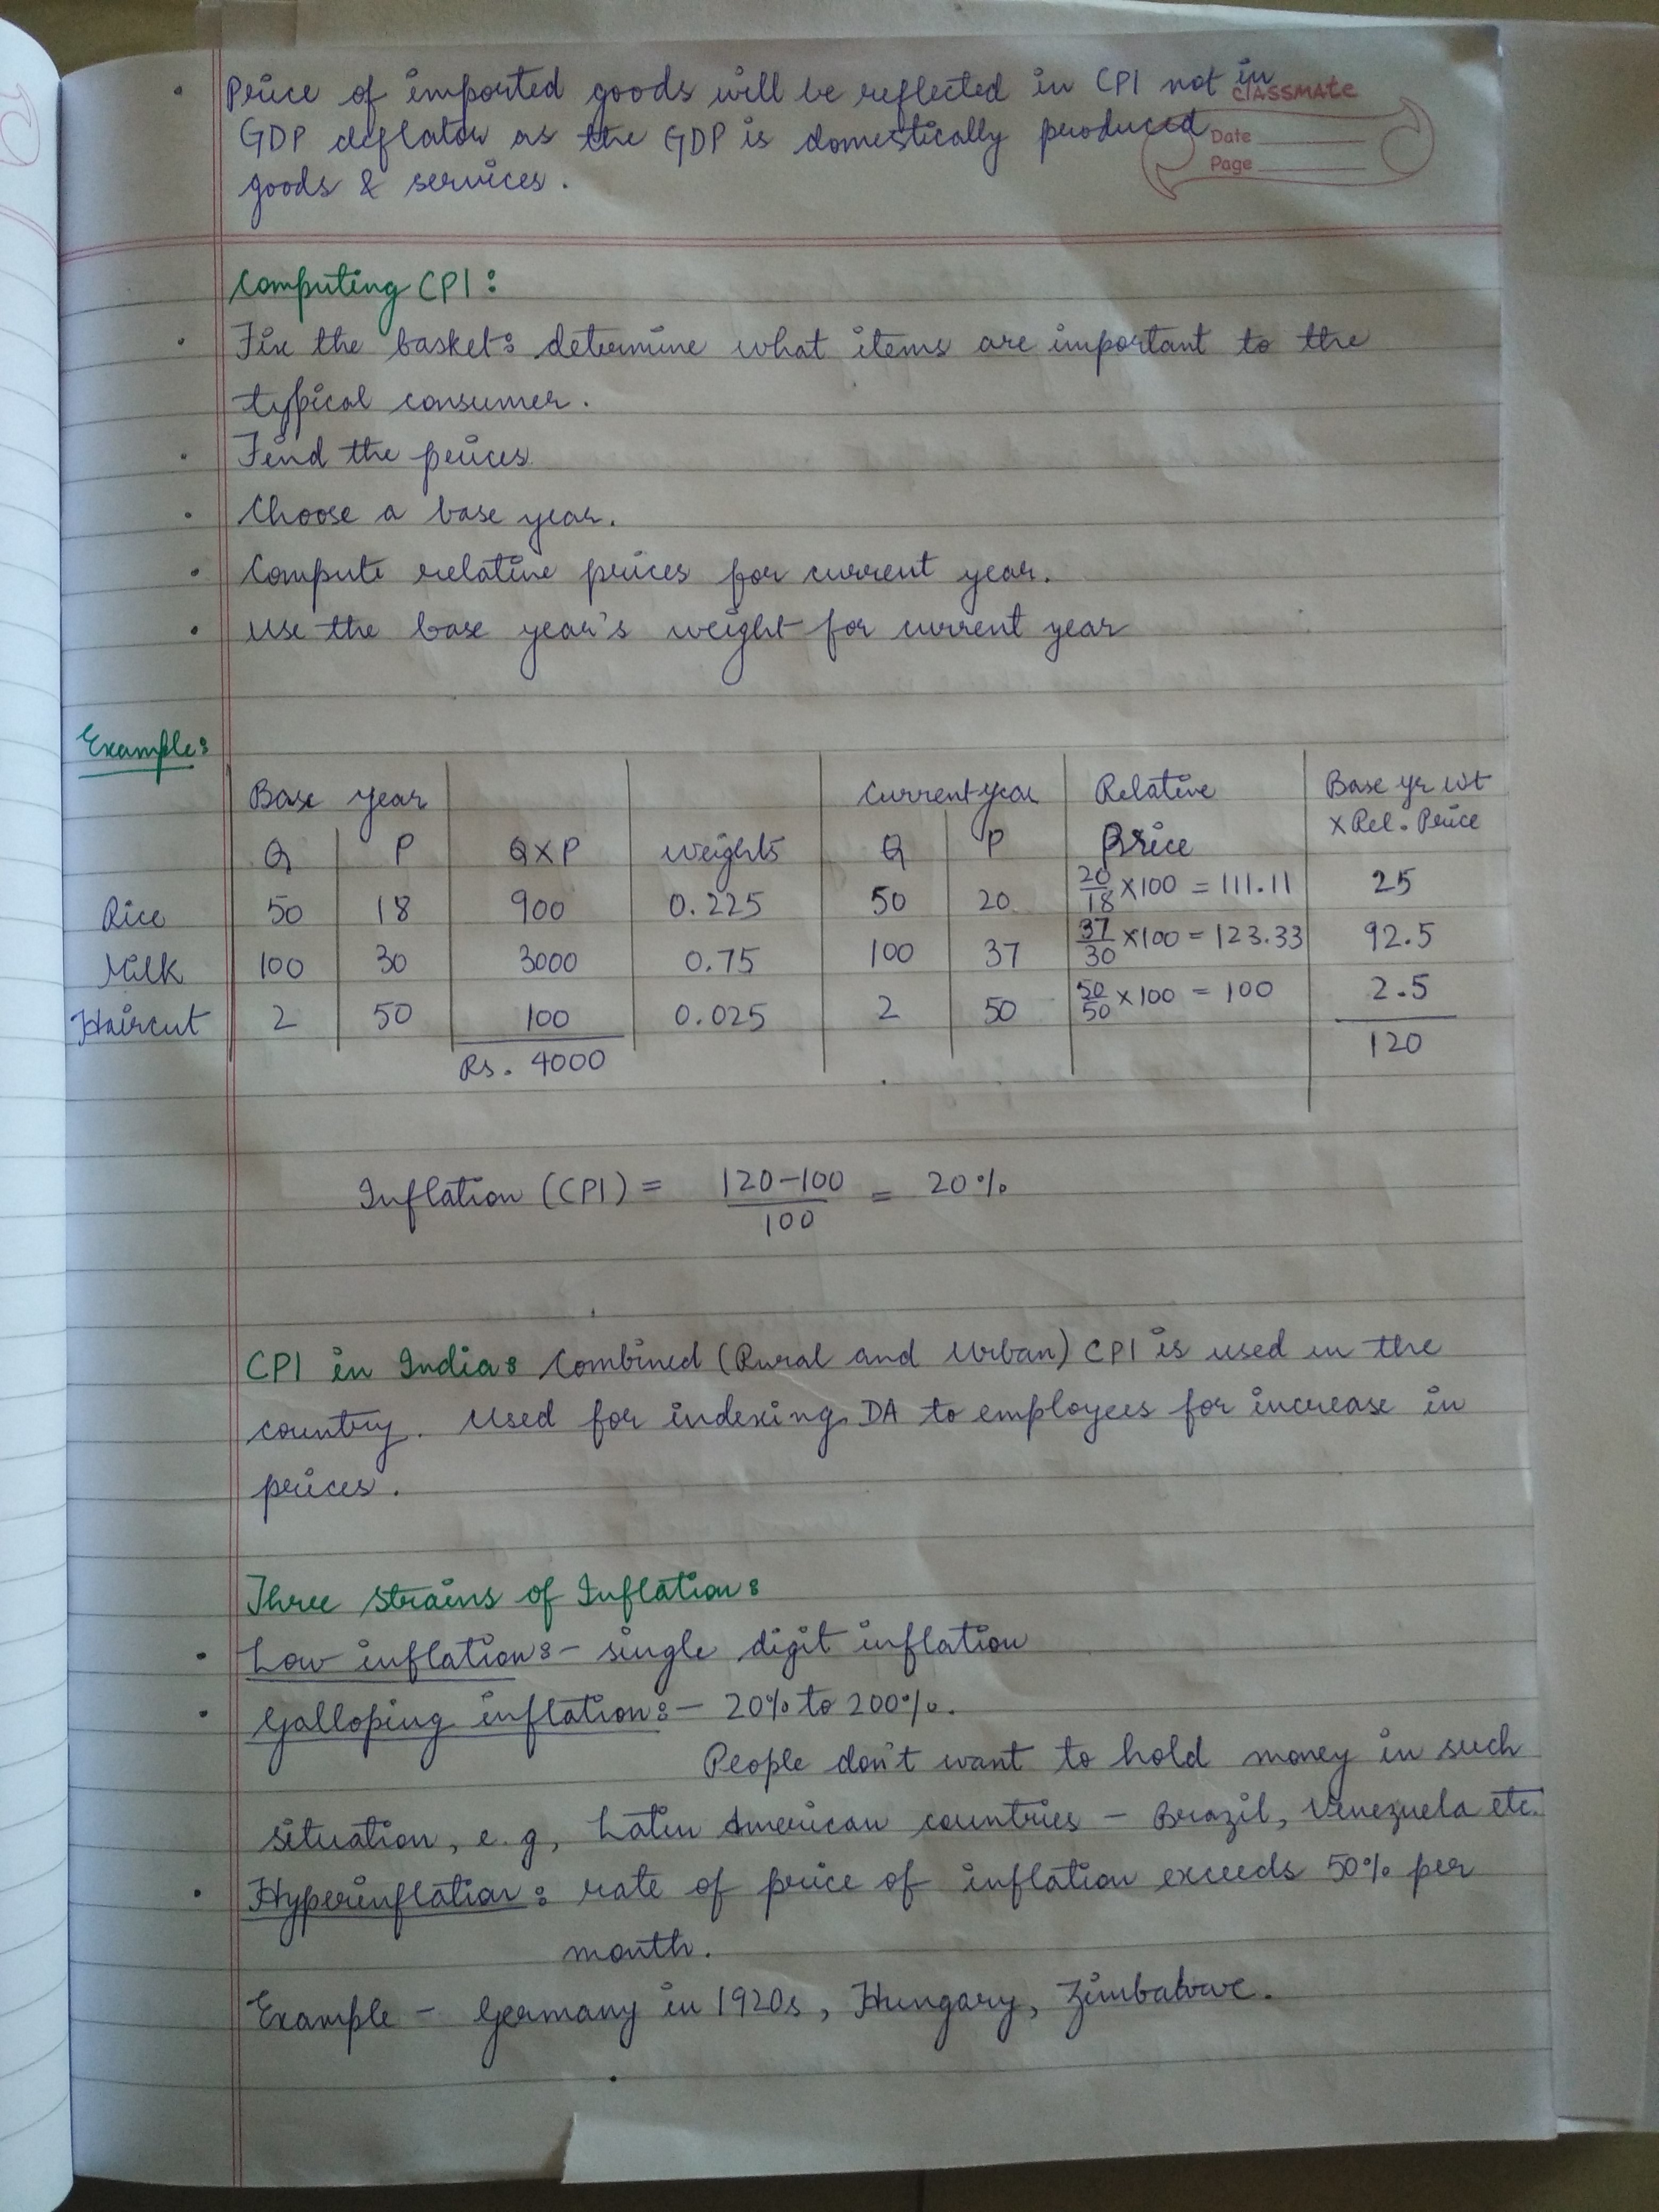 Price of imported goods will be reflected in CPI not in
classmate
GDP deflator as the GDP is domestically produced
Date
goods & services.
Page
Computing CPI:
Fix the basket: determine what items are important to the
typical consumer.
Find the prices
Choose a base year.
Compute relative prices for current year.
Use the base year's weight for current year
Example:
Base year Current year Relative Base yr wt
Q P Q×P weights Q P Price × Rel. Price
Rice 50 18 900 0.225 50 20 20/18 ×100 = 111.11 25
Milk 100 30 3000 0.75 100 37 37/30 ×100 = 123.33 92.5
Haircut 2 50 100 0.025 2 50 50/50 ×100 = 100 2.5
Rs. 4000 120
Inflation (CPI) = 120-100/100 = 20%
CPI in India: Combined (Rural and Urban) CPI is used in the
country. Used for indexing DA to employees for increase in
prices.
Three strains of Inflation:
Low inflation:- single digit inflation
Galloping inflation:- 20% to 200%.
People don't want to hold money in such
situation, e.g, Latin American countries - Brazil, Venezuela etc.
Hyperinflation: rate of price of inflation exceeds 50% per
month.
Example - Germany in 1920s, Hungary, Zimbabwe.